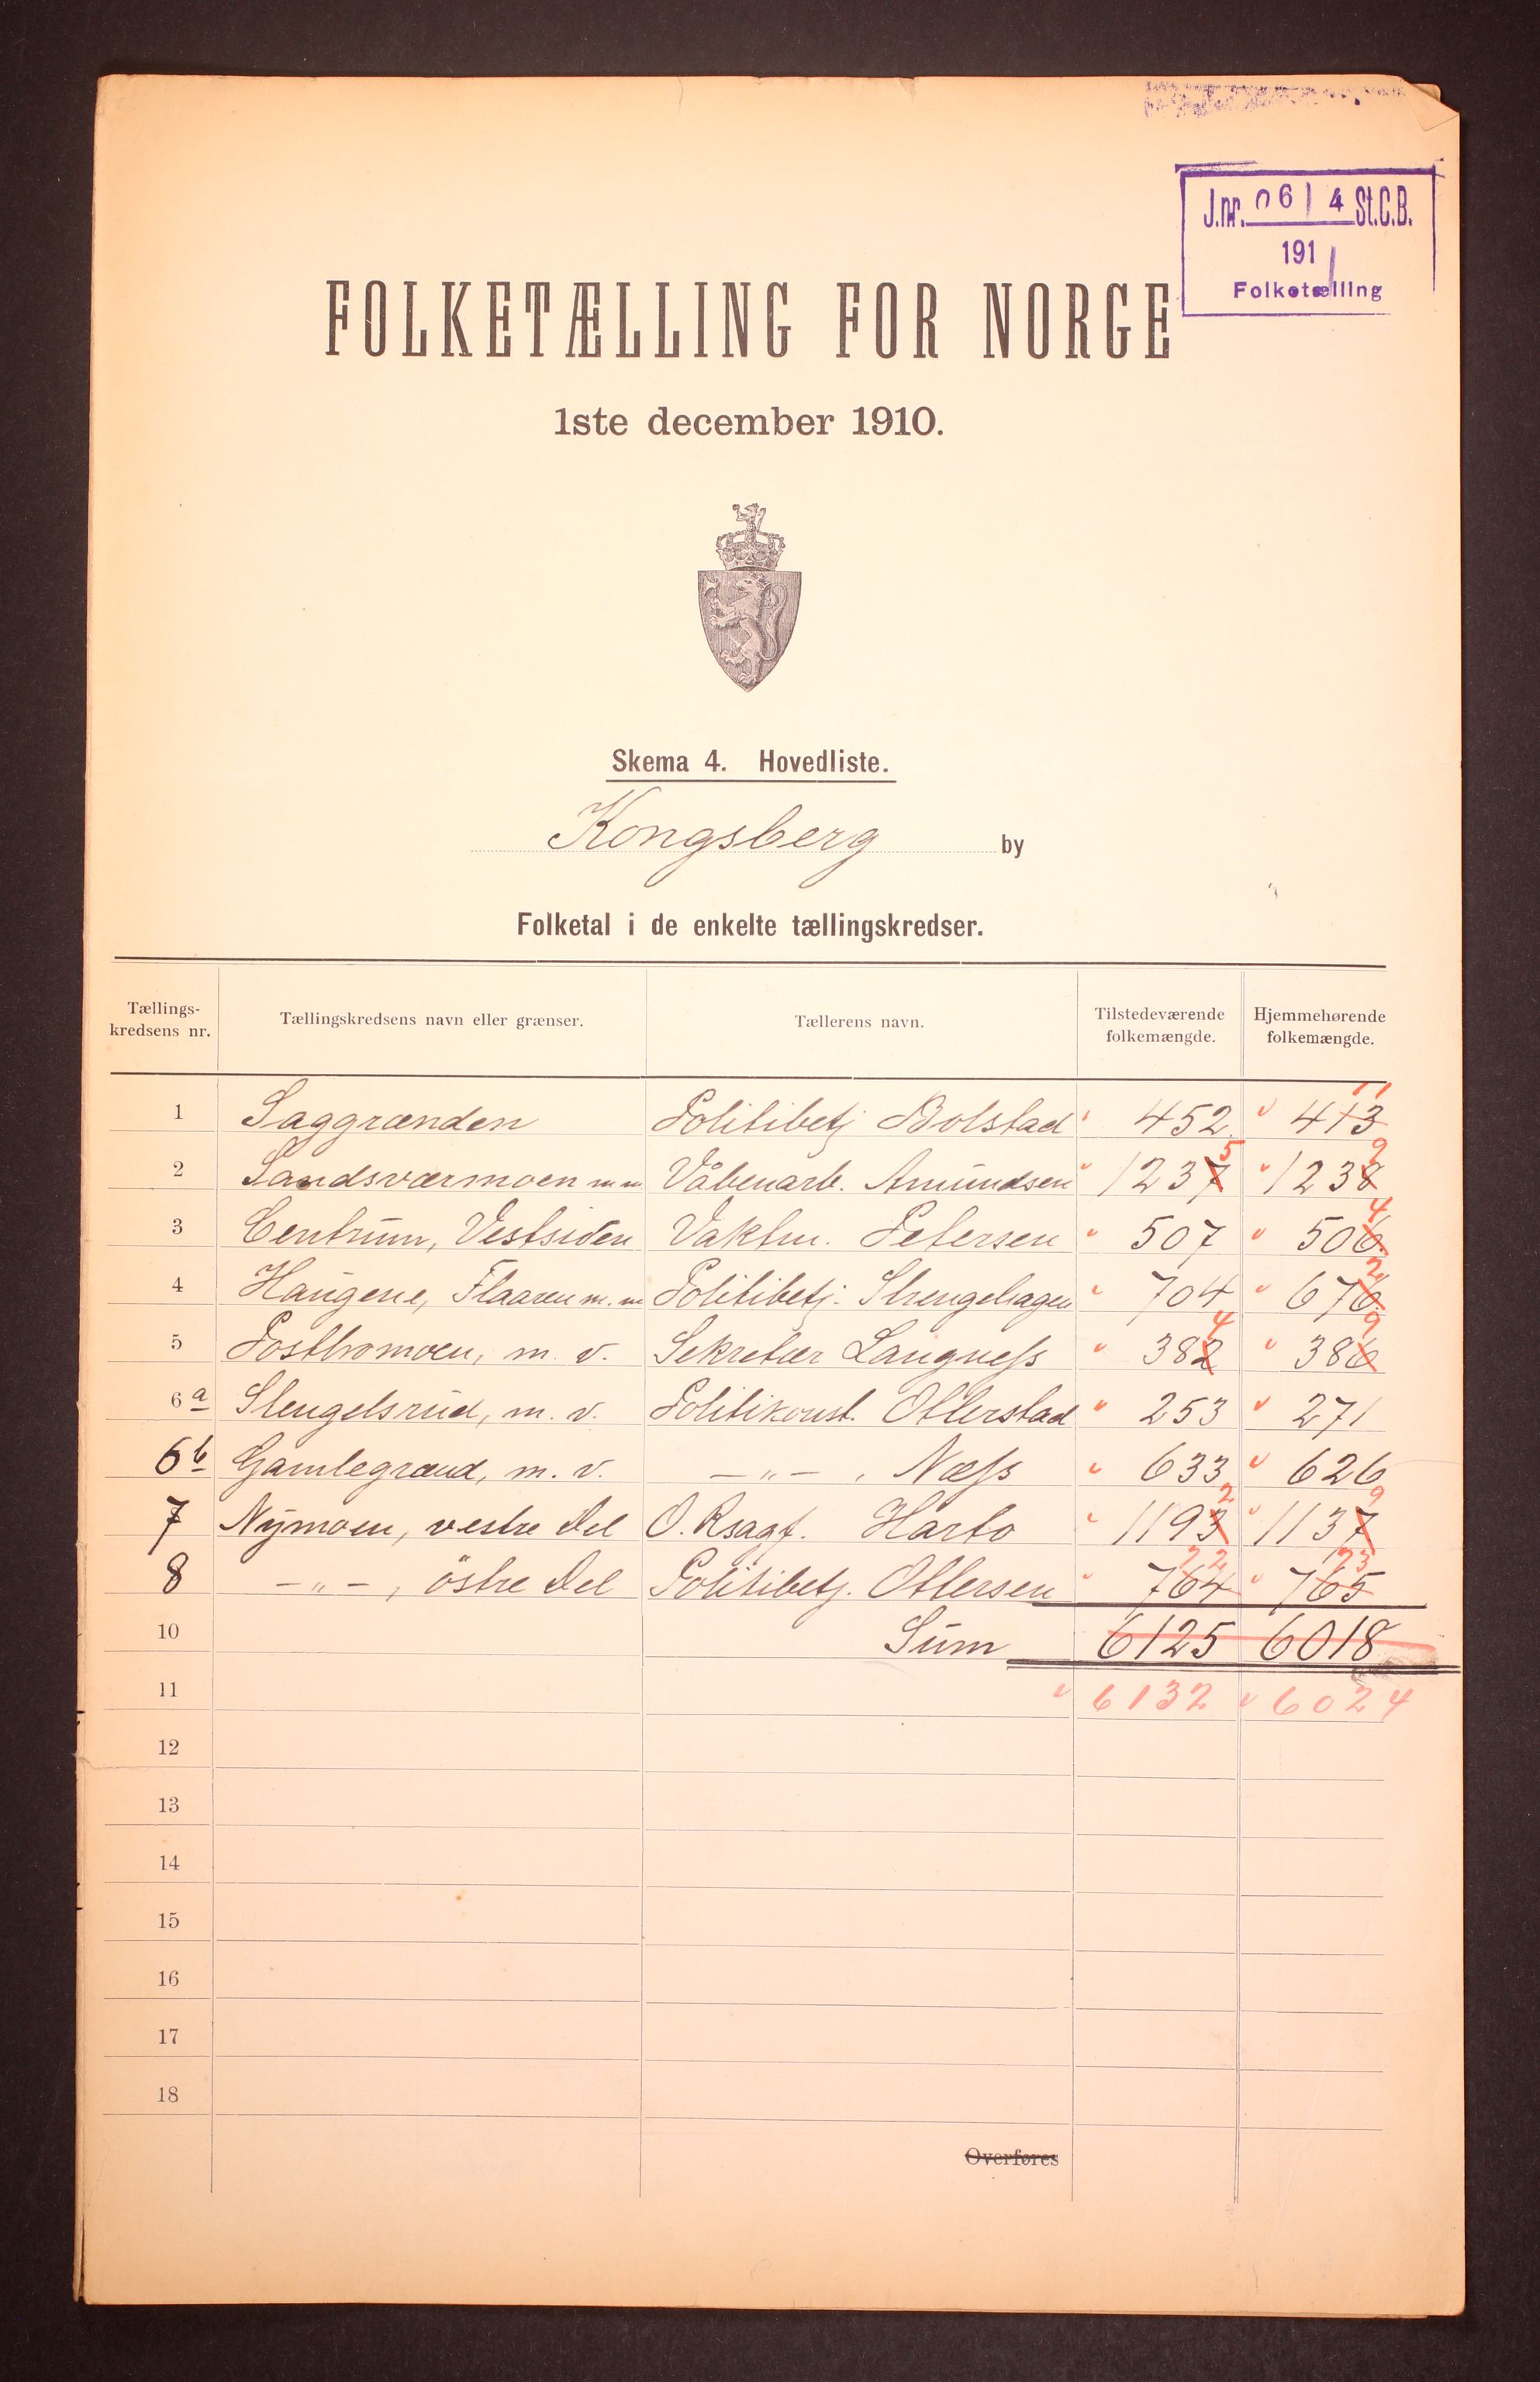 J.nr. 0614 St.C.B.
1911
Folketælling
FOLKETÆLLING FOR NORGE
1ste december 1910.
Skema 4. Hovedliste.
Kongsberg by
Folketal i de enkelte tællingskredser.
Tællings-kredsens nr. Tællingskredsens navn eller grænser. Tællerens navn. Tilstedeværende folkemængde. Hjemmehørende folkemængde.
11
1 Saggrænden Politibetj Bolstad 452 413
5 9
2 Sandsværmoen m m Våbenarb. Amundsen 1237 1238
4
3 Centrum, Vestsiden Vaktm. Petersen 507 506
2
4 Haugene, Flaaren m. m Politibetj. Strengehagen 704 676
4 9
5 Postbromoen, m. v. Sekretær Langness 382 386
6a Stengelsrud, m. v. Politikonst. Ollerstad 253 271
6b Gamlegrænd, m. v. —„— , Næss 633 626
2 9
7 Nymoen, vestre Del O. Rsagf. Harbo 1193 1137
22 73
8 —„—, östre Del Politibetj. Ottersen 764 765
10 Sum 6125 6018
11 6132 6024
12
13
14
15
16
17
18
Overføres